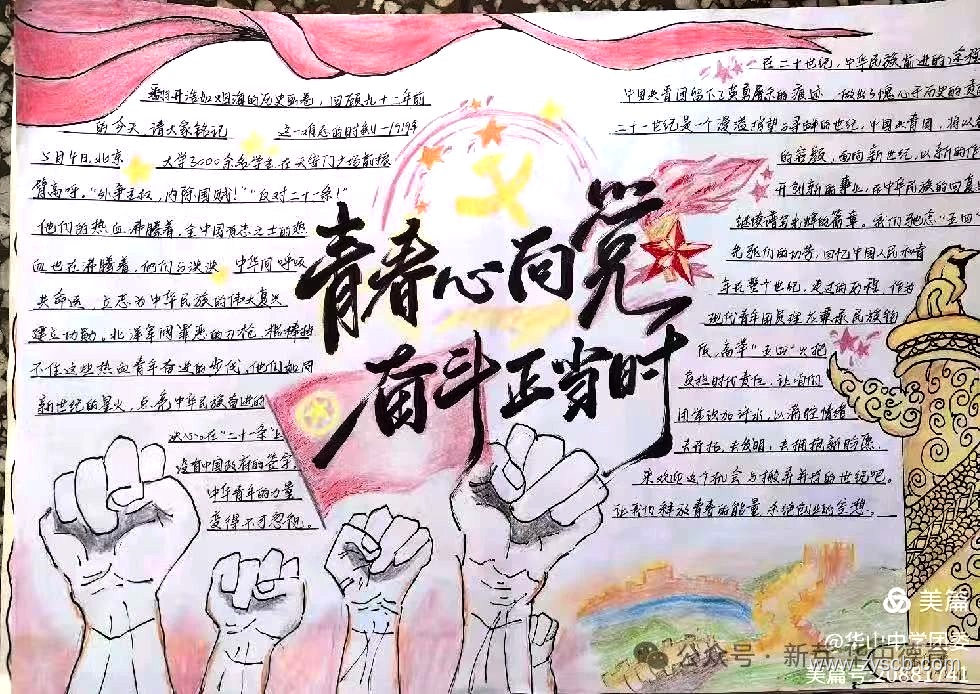 青春心向党
奋斗正当时
翻开浩如烟海的历史画卷，回顾九十二年前
的今天 请大家铭记 这一难忘的时刻—1919年
5月4日，北京 大学3000余名学生，在天安门广场前振
臂高呼。“外争主权，内除国贼！”“反对二十一条！”
他们的热血沸腾着，全中国有志之士的热
血也在沸腾着，他们与泱泱 中华同呼吸
共命运 立志为中华民族的伟大复兴
建立功勋。北洋军阀罪恶的刀枪，根棒挡
不住这些热血青年奋进的步伐，他们如同
新世纪的星火，点亮中华民族奋进的
决心。在“二十一条”上
没有中国政府的签字
中华青年的力量
变得不可忽视。
在二十世纪，中华民族前进的途程
中国共青团留下了
二十一世纪是一个漫溢指望与寻衅的世纪，中国共青团，将以
的容貌，面向新世纪，以新的作
开创新的事业，在中华民族的回复
继续谱写光辉的篇章。我们驰念“五四”
先驱们的功劳，回忆中国人民和青
年在整个世纪，走过的历程，作为
现代青年团员理应秉承民族精
低，高举“五四”火把
负担时代责任，让咱们
团年谈加汗水，以满腔情绪
去开拓，去发明，去拥抱新盼愿
来欢迎这个机会与搬弄并存的世纪吧。
让我们释放青春的能量 承继创业的空想。
美篇
@华山中学团委
公众号·新君华中德育
www.zyscb.com
美篇号:20881741